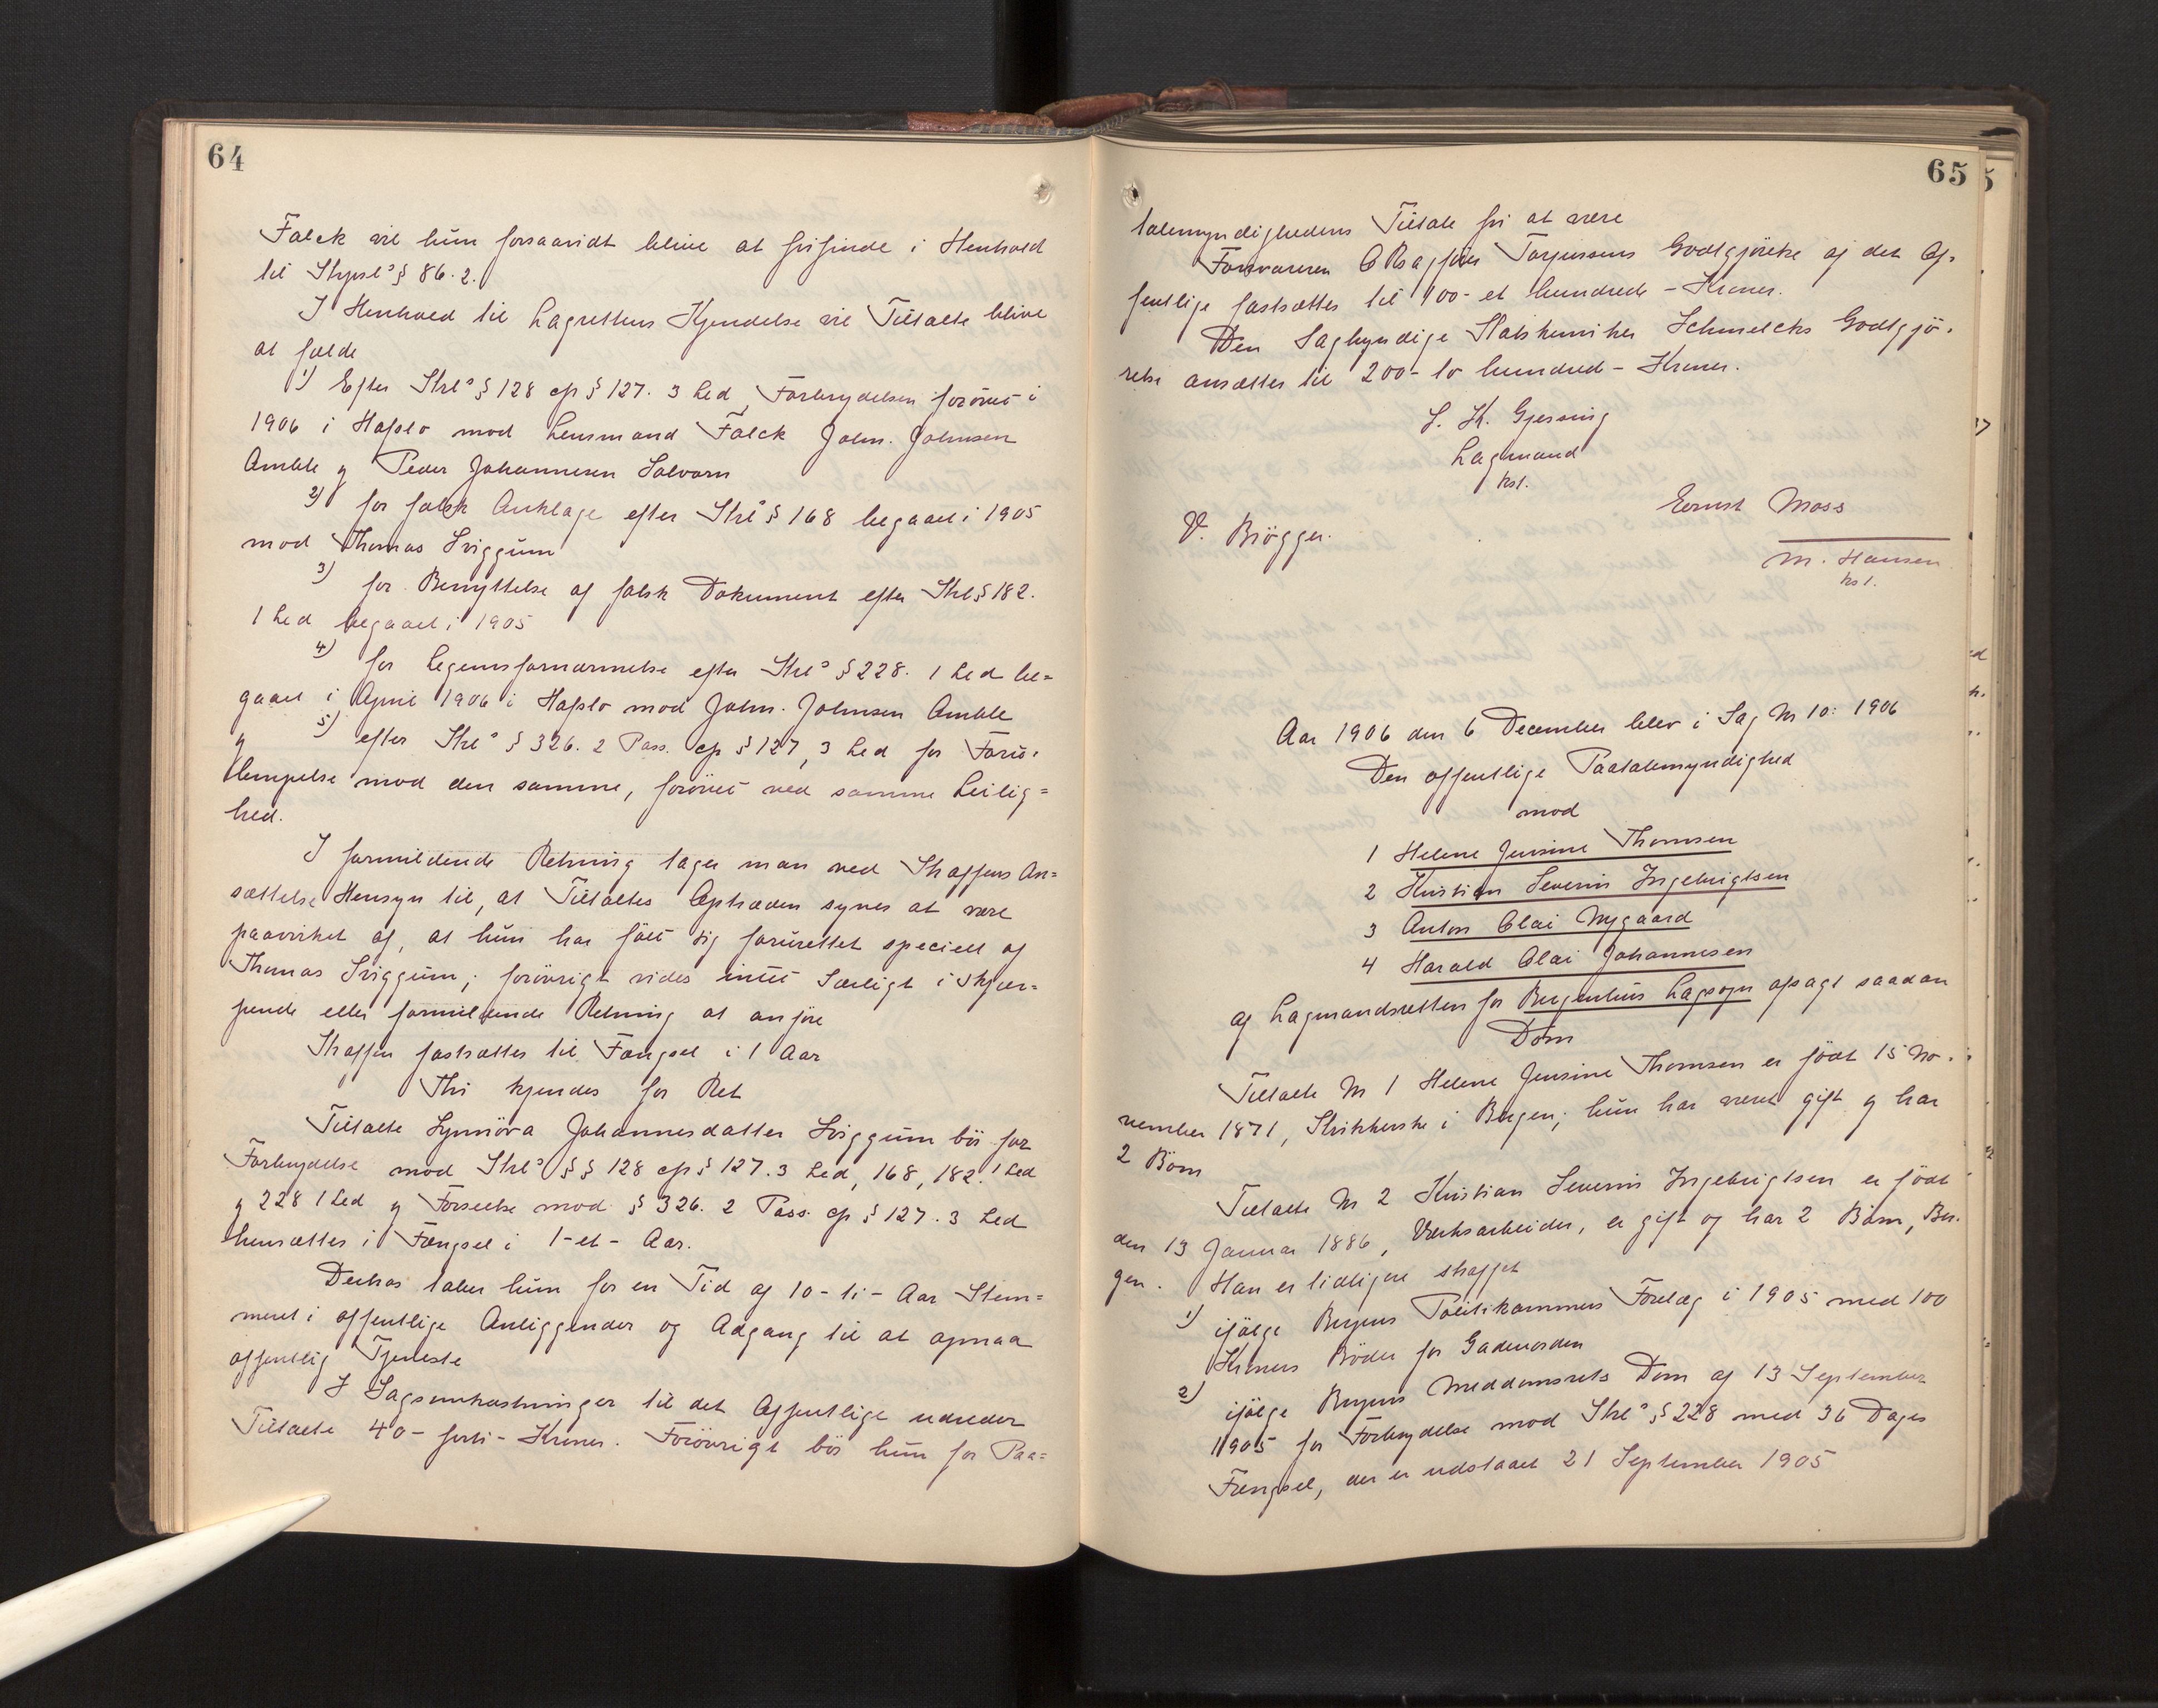 64
Falck vil hun forsaavidt blive at frifinde i Henhold
til Strpsl's § 86. 2.
I Henhold til Lagrettens Kjendelse vil Tiltalte blive
at fælde
1) Efter Strl's § 128 cfr § 127. 3 Led, Forbrydelsen forövet i
1906 i Hafslo mod Lensmand Falck John. Johnsen
Amble g Peder Johannesen Solvorn
2) for falsk Anklage efter Strl's § 168 begaaet i 1905
mod Thomas Sviggum
3) for Benyttelse af falsk Dokument efter Strl § 182.
1 Led begaaet i 1905
4) for Legemsfornærmelse efter Strl's § 228. 1 Led be=
gaaet i April 1906 i Hafslo mod John. Johnsen Amble
g 5) efter Strl's § 326. 2 Pass. cfr § 127, 3 Led for Foru-
lempelse mod den samme, forövet ved samme Leilig=
hed.
I formildende Retning tager man ved Straffens An=
sættelse Hensyn til, at Tiltaltes Optræden synes at være
paavirket af, at hun har fölt sig forurettet specielt af
Thomas Sviggum; forövrigt vides intet Særligt i skjær=
pende eller formildende Retning at anföre
Straffen fastsættes til Fængsel i 1 Aar
Thi kjendes for Ret
Tiltalte Synnöva Johannesdatter Sviggum bör for
Forbrydelse mod Strl's §§ 128 cfr § 127. 3 Led, 168, 182. 1 Led
g 228 1 Led g Forseelse mod § 326. 2 Pass. cfr § 127. 3 Led
hensættes i Fængsel i 1-et- Aar.
Derhos taber hun for en Tid af 10-ti- Aar Stem=
meret i offentlige Anliggender og Adgang til at opnaa
offentlig Tjeneste
I Sagsomkostninger til det Offentlige udreder
Tiltalte 40-forti- Kroner. Forövrigt bör hun for Paa=
65
talemyndighedens Tiltale fri at være
Forsvareren Torjussens Godtgjörelse af det Of-
fentlige fastsættes til 100-et hundrede- Kroner.
Den Sagkyndige Statskemiker Schmelcks Godtgjö-
relse ansættes til 200-to hundred- Kroner.
S. K. Gjessing
Lagmand
kst.
Ernst Moss
V. Brögger.
M. Hansen
kst.
Aar 1906 den 6 December blev i Sag No 10: 1906
Den offentlige Paatalemyndighed
mod
1 Helene Jensine Thomsen
2 Kristian Severin Ingebrigtsen
3 Anton Olai Nygaard
4 Harald Olai Johannesen
af Lagmandsretten for Bergenhus Lagsogn afsagt saadan
Dom
Tiltalte No 1 Helene Jensine Thomsen er födt 15 No-
vember 1871, Strikkerske i Bergen; hun har været gift g har
2 Börn
Tiltalte No 2 Kristian Severin Ingebrigtsen er födt
den 13 Januar 1886, Værksarbeider, er gift og har 2 Börn, Ber-
gen. Han er tidligere straffet
1) ifölge Bergens Politikammers Forelæg i 1905 med 100
Kroners Böder for Gadeuorden
2) ifölge Bergens Meddomsrets Dom af 13 September
1905 for Forbrydelse mod Strl's § 228 med 36 Dages
Fængsel, der er udstaaet 21 September 1905